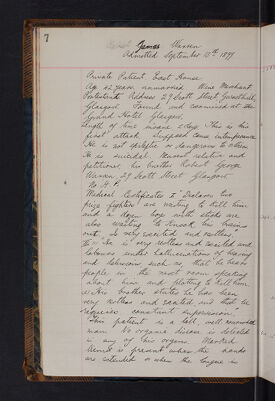 7
James Warren
Admitted September 10th 1899
Private Patient East House
Age 42 years unmarried. Wine Merchant
Protestant Address 29 Scott Street, Garnethill,
Glasgow Found and examined at the
Grand Hotel Glasgow.
Length of time insane 2 days This is his
first attack Supposed cause intemperance
He is not epileptic or dangerous to others
He is suicidal Nearest relative and
petitioner, his brother Robert George
Warren 29 Scott Street Glasgow
No. H. P.
Medical Certificates I Declares two
prize fighters are waiting to kill him
and a dozen boys with sticks are
also waiting to knock his brains
out. Is very excited and restless
II He is very restless and excited and
labours under hallucinations of hearing
and delusions such as that he hears
people in the next room speaking
about him and plotting to kill him
His brother states he has been
very restless and excited and that he
requires constant supervision.
This patient is a tall, well nourished
man No organic disease is detected
in any of his organs. Marked
tremor is present when the hands
are extended or when the tongue is